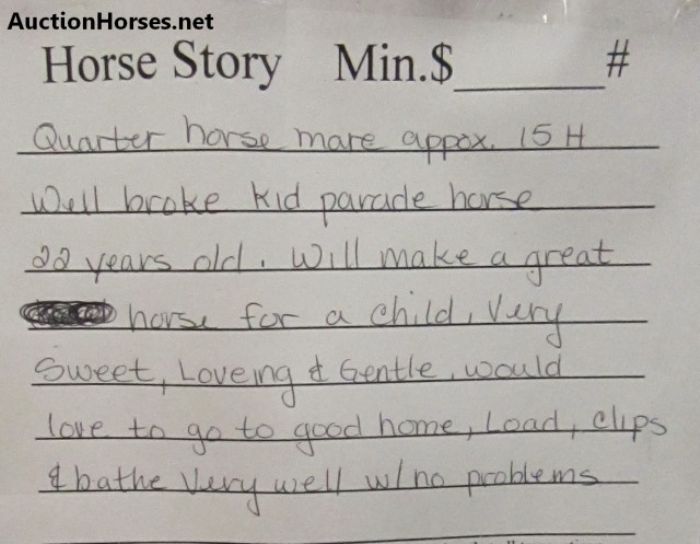 AuctionHorses.net
Horse Story Min.$ #
Quarter horse mare appox. 15 H
Well broke kid parade horse
22 years old. Will make a great
horse for a child. Very
Sweet, Loveing & Gentle, would
love to go to good home, Load, Clips
& bathe Very well w/ no problems